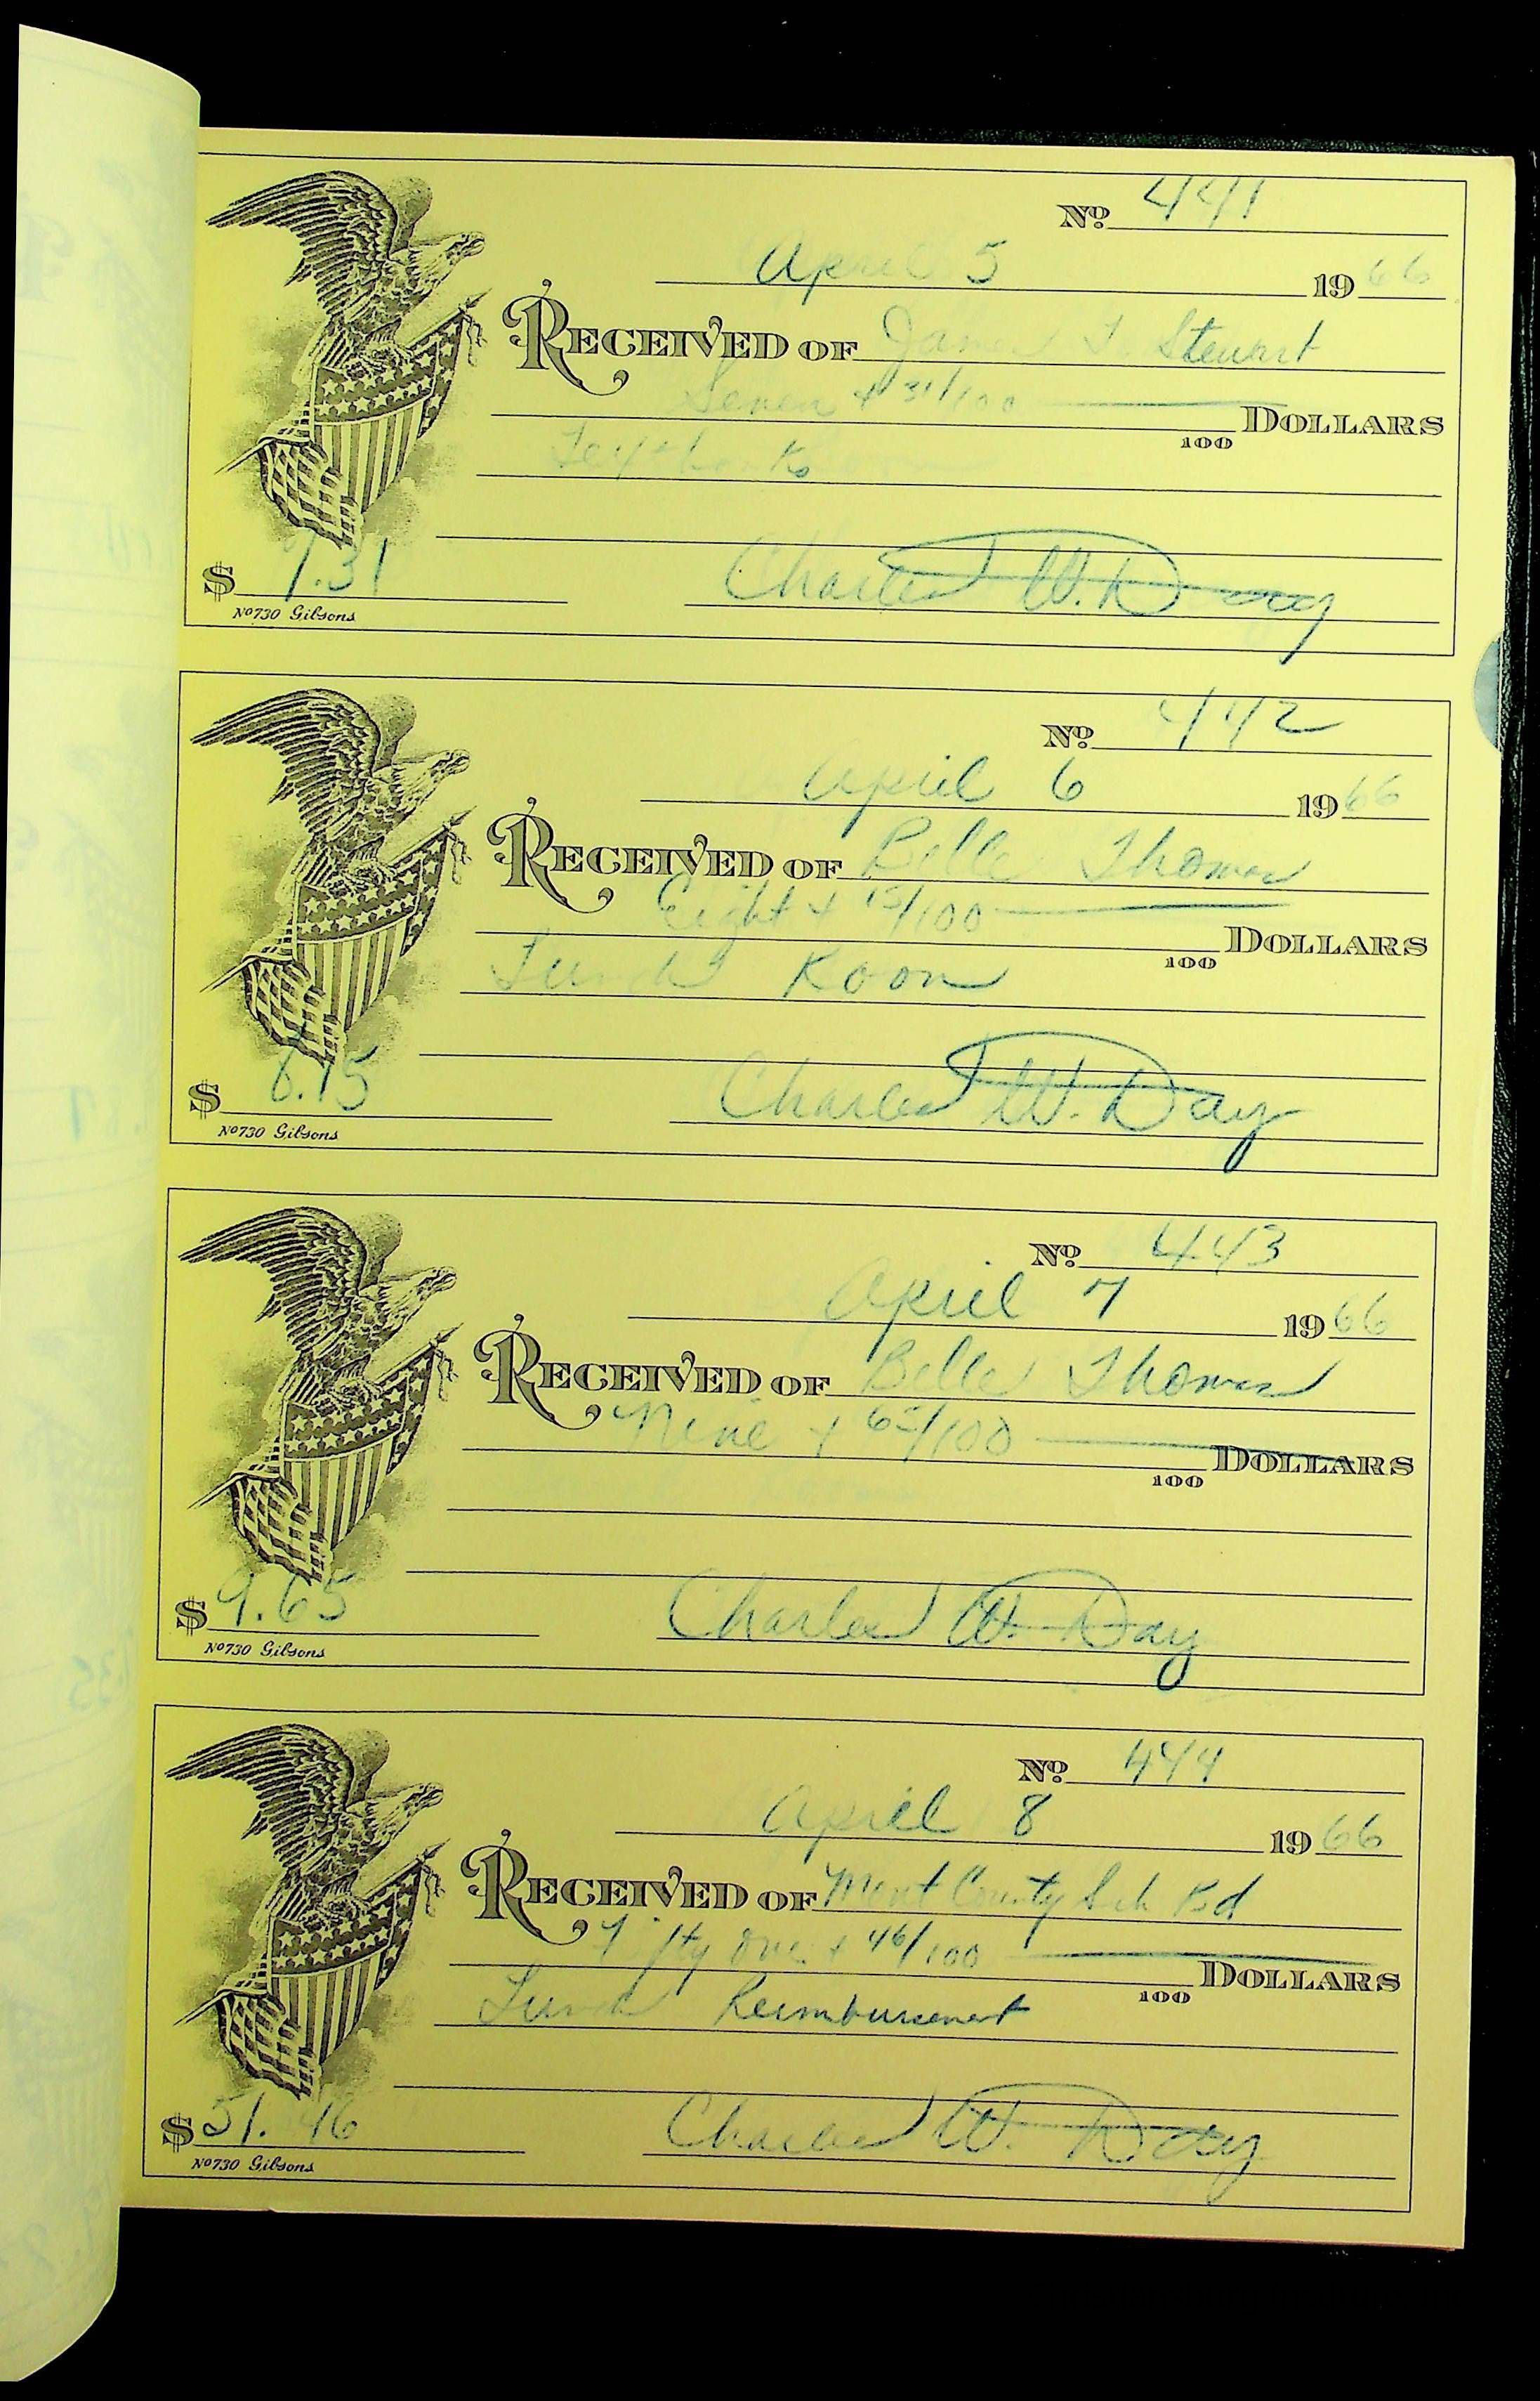 Nº 441
April 5 1966
RECEIVED OF James F. Stewart
Seven + 31/100 DOLLARS
100
Textbooks
Charles W. Day
$ 7.31
Nº730 Gibsons
Nº 442
April 6 1966
RECEIVED OF Belle Thomas
Eight + 15/100 DOLLARS
100
Lunch Room
Charles W. Day
$ 8.15
Nº730 Gibsons
Nº 443
April 7 1966
RECEIVED OF Belle Thomas
Nine + 65/100 DOLLARS
100
Charles W. Day
$ 9.65
Nº730 Gibsons
Nº 444
April 8 1966
RECEIVED OF Mont County Sch Bd
Fifty One + 46/100 DOLLARS
100
Lunch Reimbursement
Charles W. Day
$ 51.46
Nº730 Gibsons